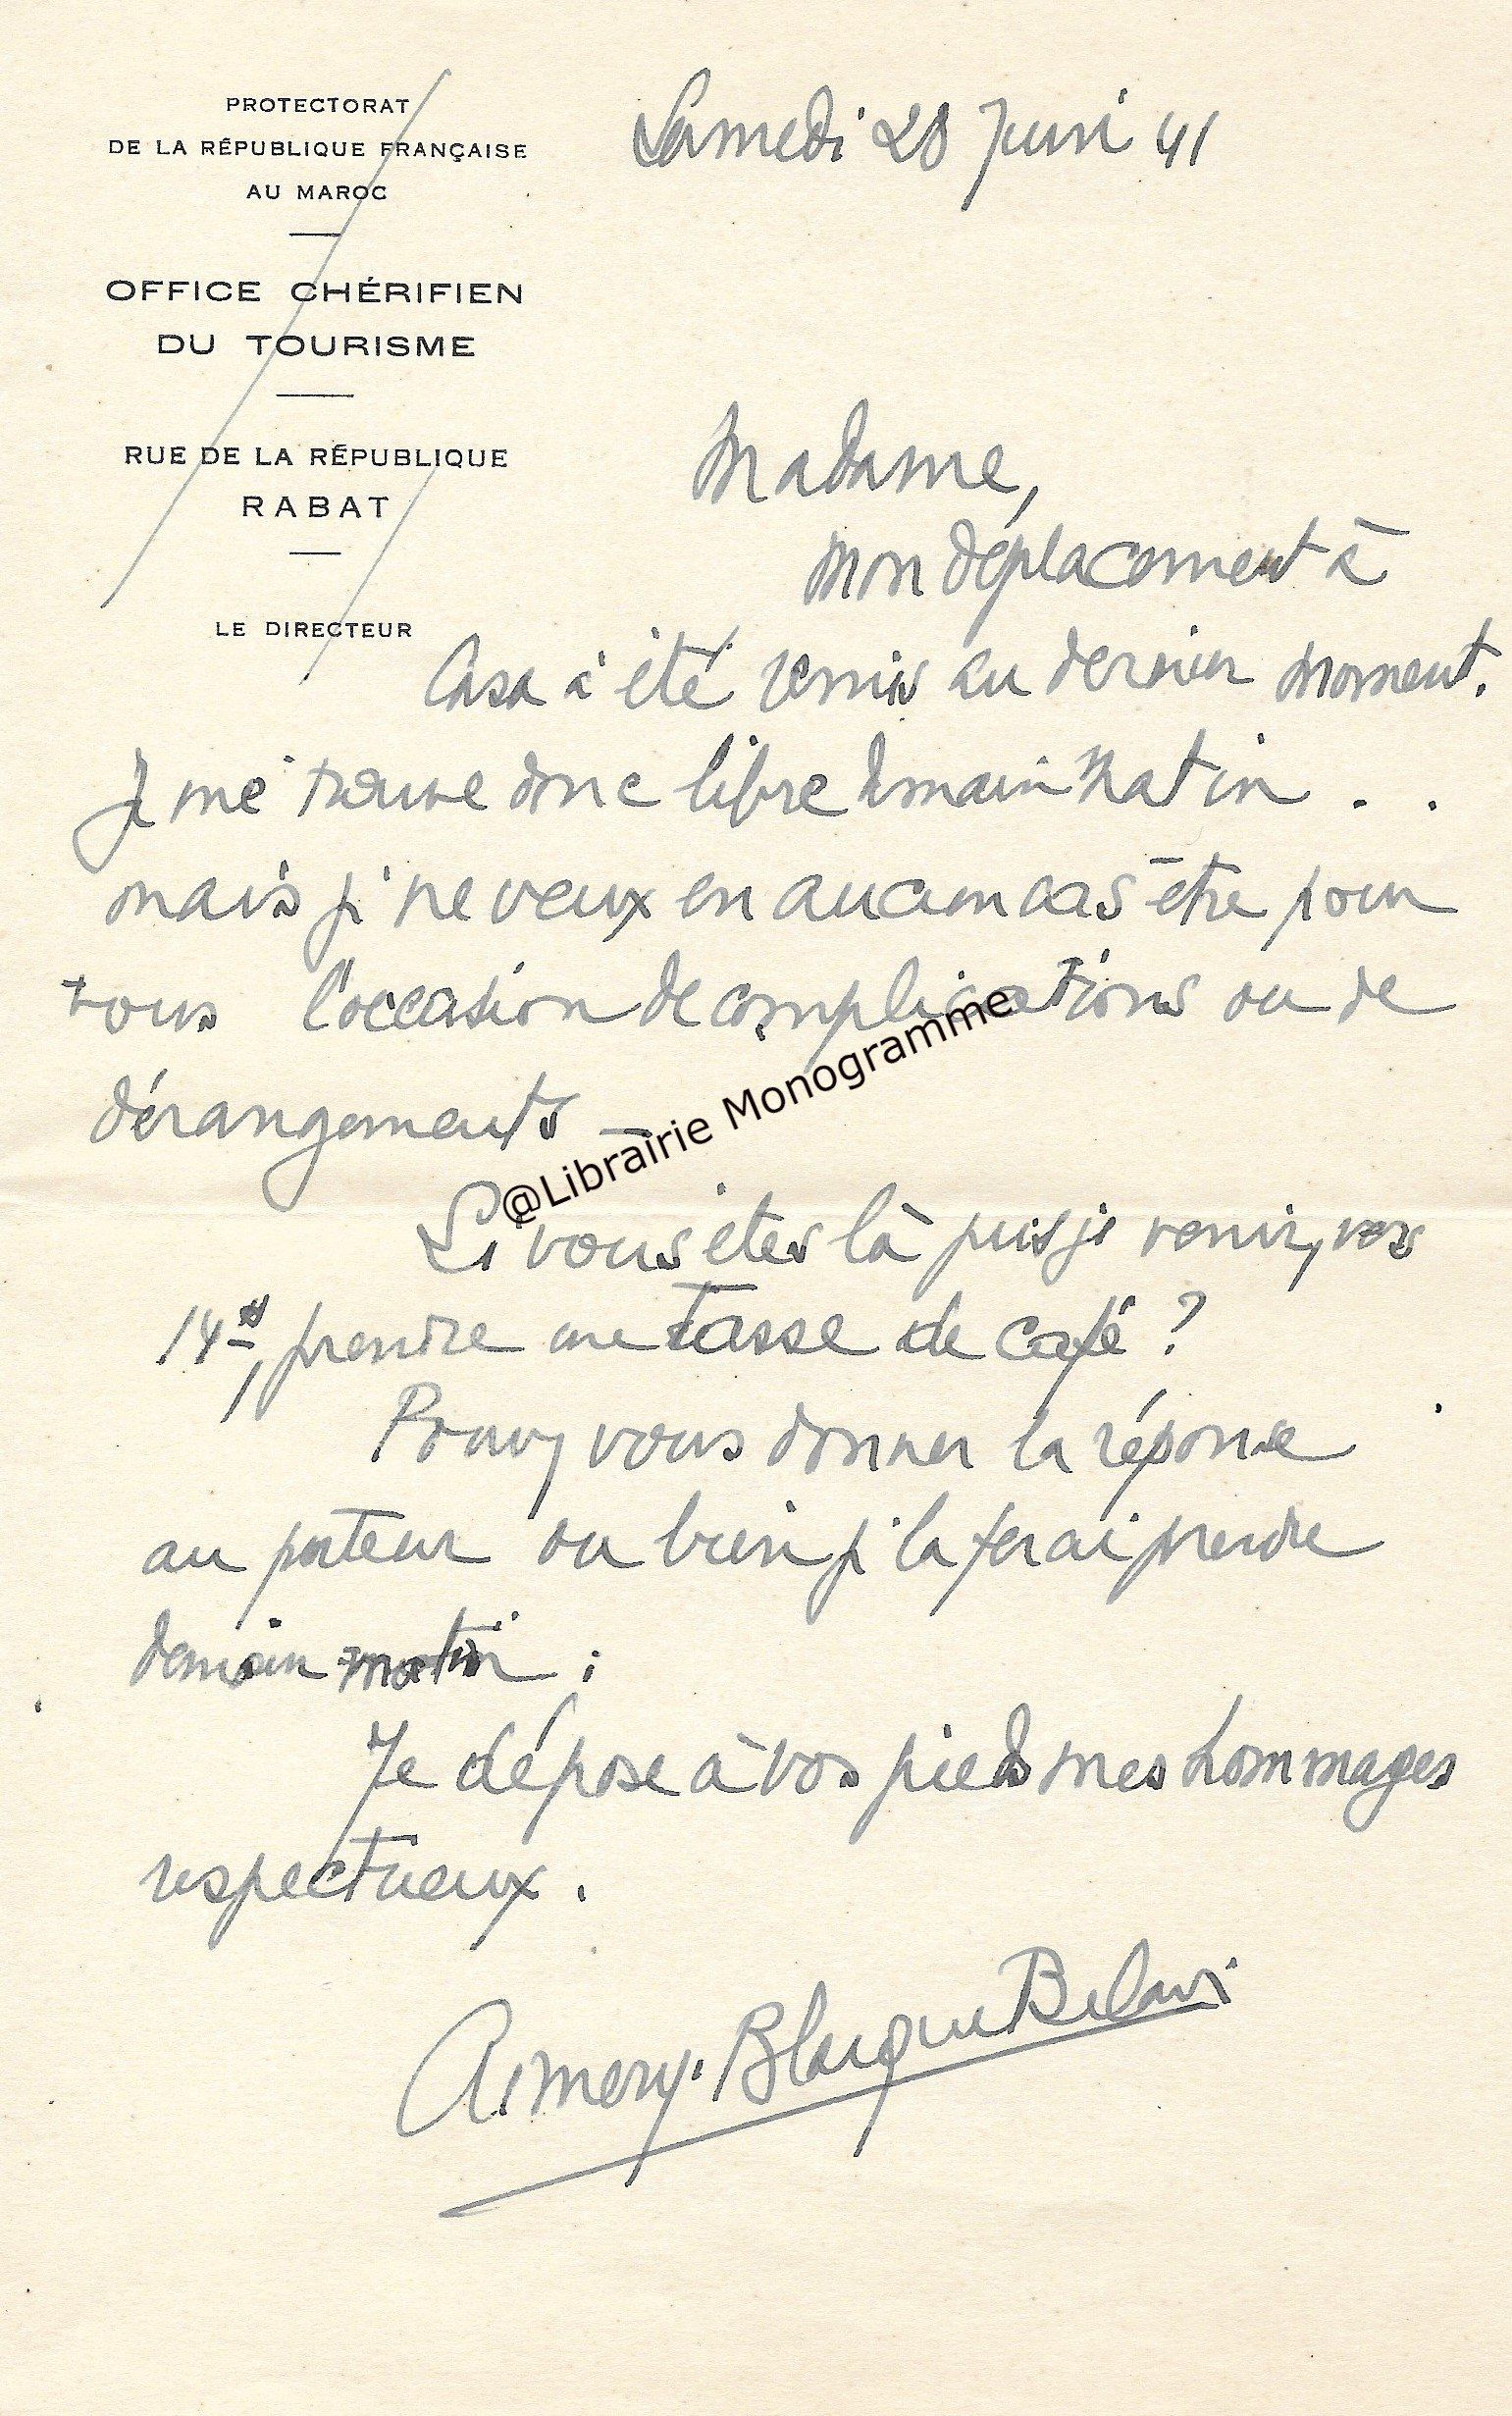 PROTECTORAT
DE LA RÉPUBLIQUE FRANÇAISE
AU MAROC
OFFICE CHÉRIFIEN
DU TOURISME
RUE DE LA RÉPUBLIQUE
RABAT
LE DIRECTEUR
Samedi 28 Juin 41
Madame,
mon déplacement à
Casa a été remis au dernier moment.
Je me trouve donc libre demain matin . .
mais je ne veux en aucun cas être pour
vous l'occasion de complications ou de
dérangements —
Si vous êtes là puis je venir, vers
14h, prendre une tasse de café ?
Pouvez vous donner la réponse
au porteur ou bien je la ferai prendre
demain matin .
Je dépose à vos pieds mes hommages
respectueux .
Aimery. Blacque Belair
@Librairie Monogramme